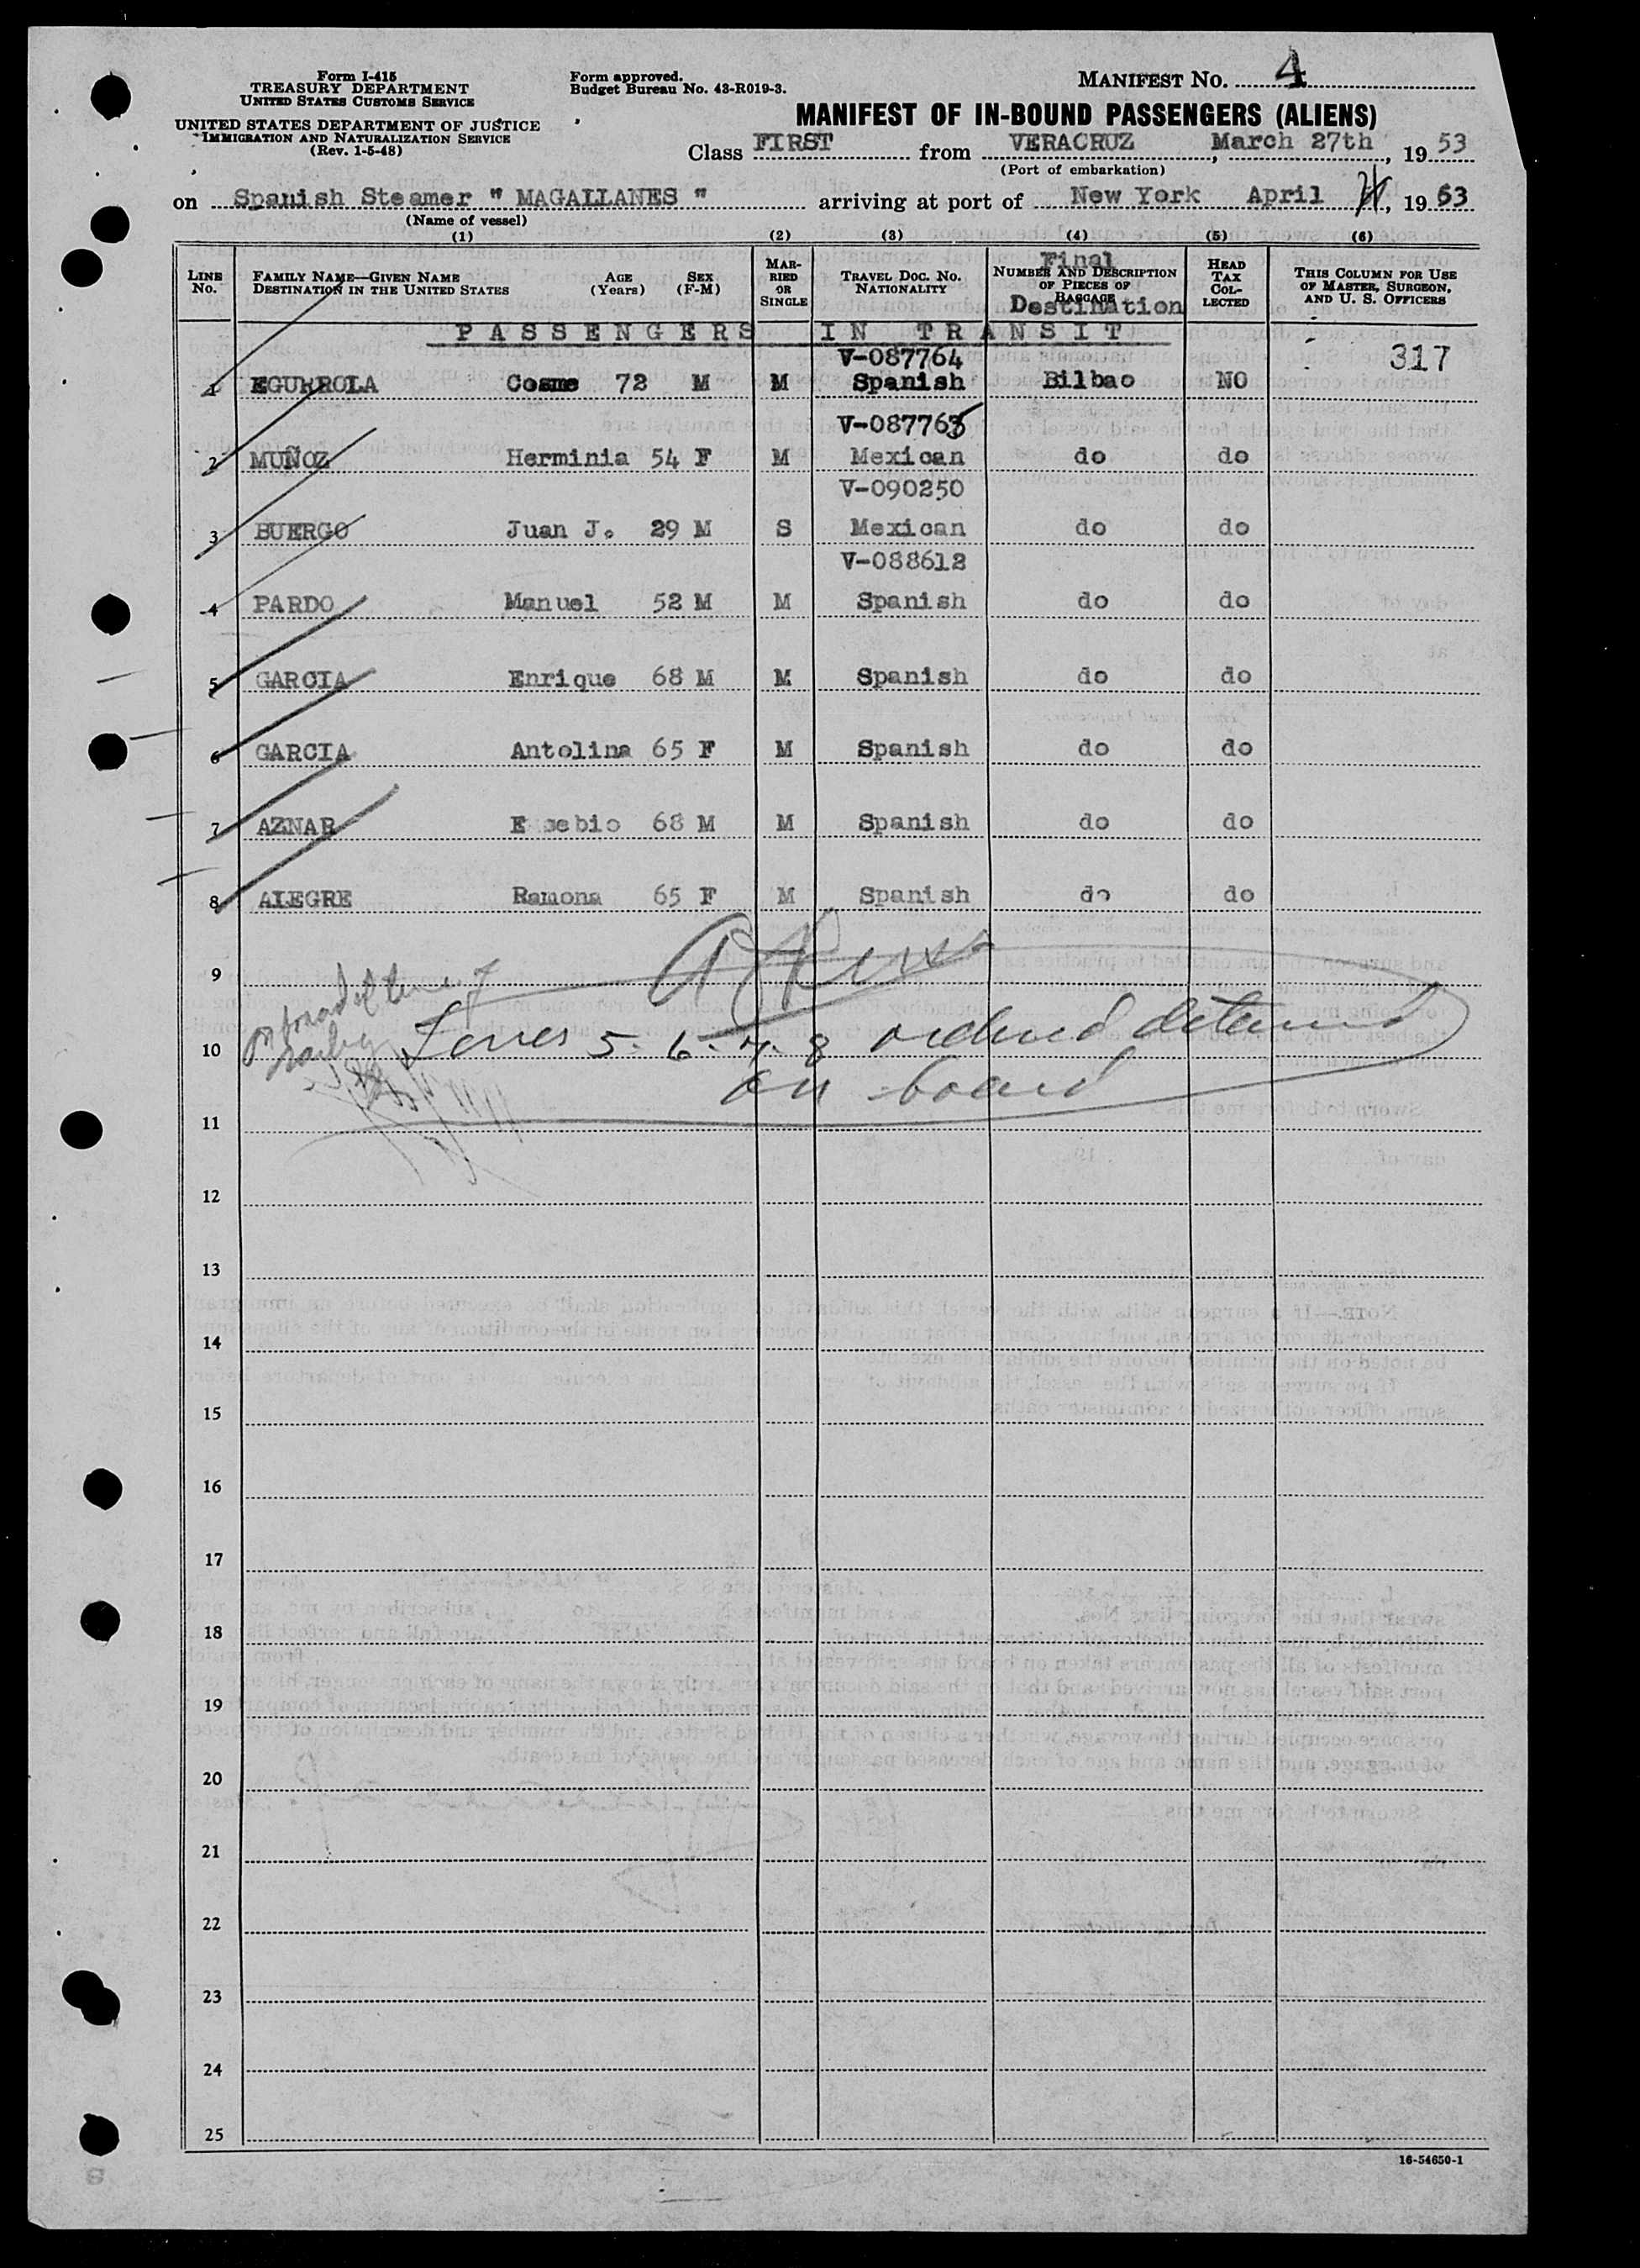 Form I-415
TREASURY DEPARTMENT
UNITED STATES CUSTOMS SERVICE
UNITED STATES DEPARTMENT OF JUSTICE
IMMIGRATION AND NATURALIZATION SERVICE
(Rev. 1-5-48)
Form approved.
Budget Bureau No. 43-R019-3.
MANIFEST NO. 4
MANIFEST OF IN-BOUND PASSENGERS (ALIENS)
Class FIRST from VERACRUZ, March 27th, 19 53
(Port of embarkation)
on Spanish Steamer " MAGALLANES " arriving at port of New York April, 19 53
(Name of vessel)
(1) (2) (3) (4) (5) (6)
LINE No.
FAMILY NAME—GIVEN NAME DESTINATION IN THE UNITED STATES
AGE (Years)
SEX (F-M)
MARRIED OR SINGLE
TRAVEL DOC. NO. NATIONALITY
Final
NUMBER AND DESCRIPTION OF PIECES OF BAGGAGE
Destination
HEAD TAX COLLECTED
THIS COLUMN FOR USE OF MASTER, SURGEON, AND U. S. OFFICERS
PASSENGERS IN TRANSIT
V-087764 317
1 EGURROLA Cosme 72 M M Spanish Bilbao NO
V-087765
2 MUÑOZ Herminia 54 F M Mexican do do
V-090250
3 BUERGO Juan J. 29 M S Mexican do do
V-088612
4 PARDO Manuel 52 M M Spanish do do
5 GARCIA Enrique 68 M M Spanish do do
6 GARCIA Antolina 65 F M Spanish do do
7 AZNAR E sebio 68 M M Spanish do do
8 ALEGRE Ramona 65 F M Spanish do do
9
10 Lines 5. 6. 7. 8 ordered detained
on board
11
12
13
14
15
16
17
18
19
20
21
22
23
24
25
16-54650-1